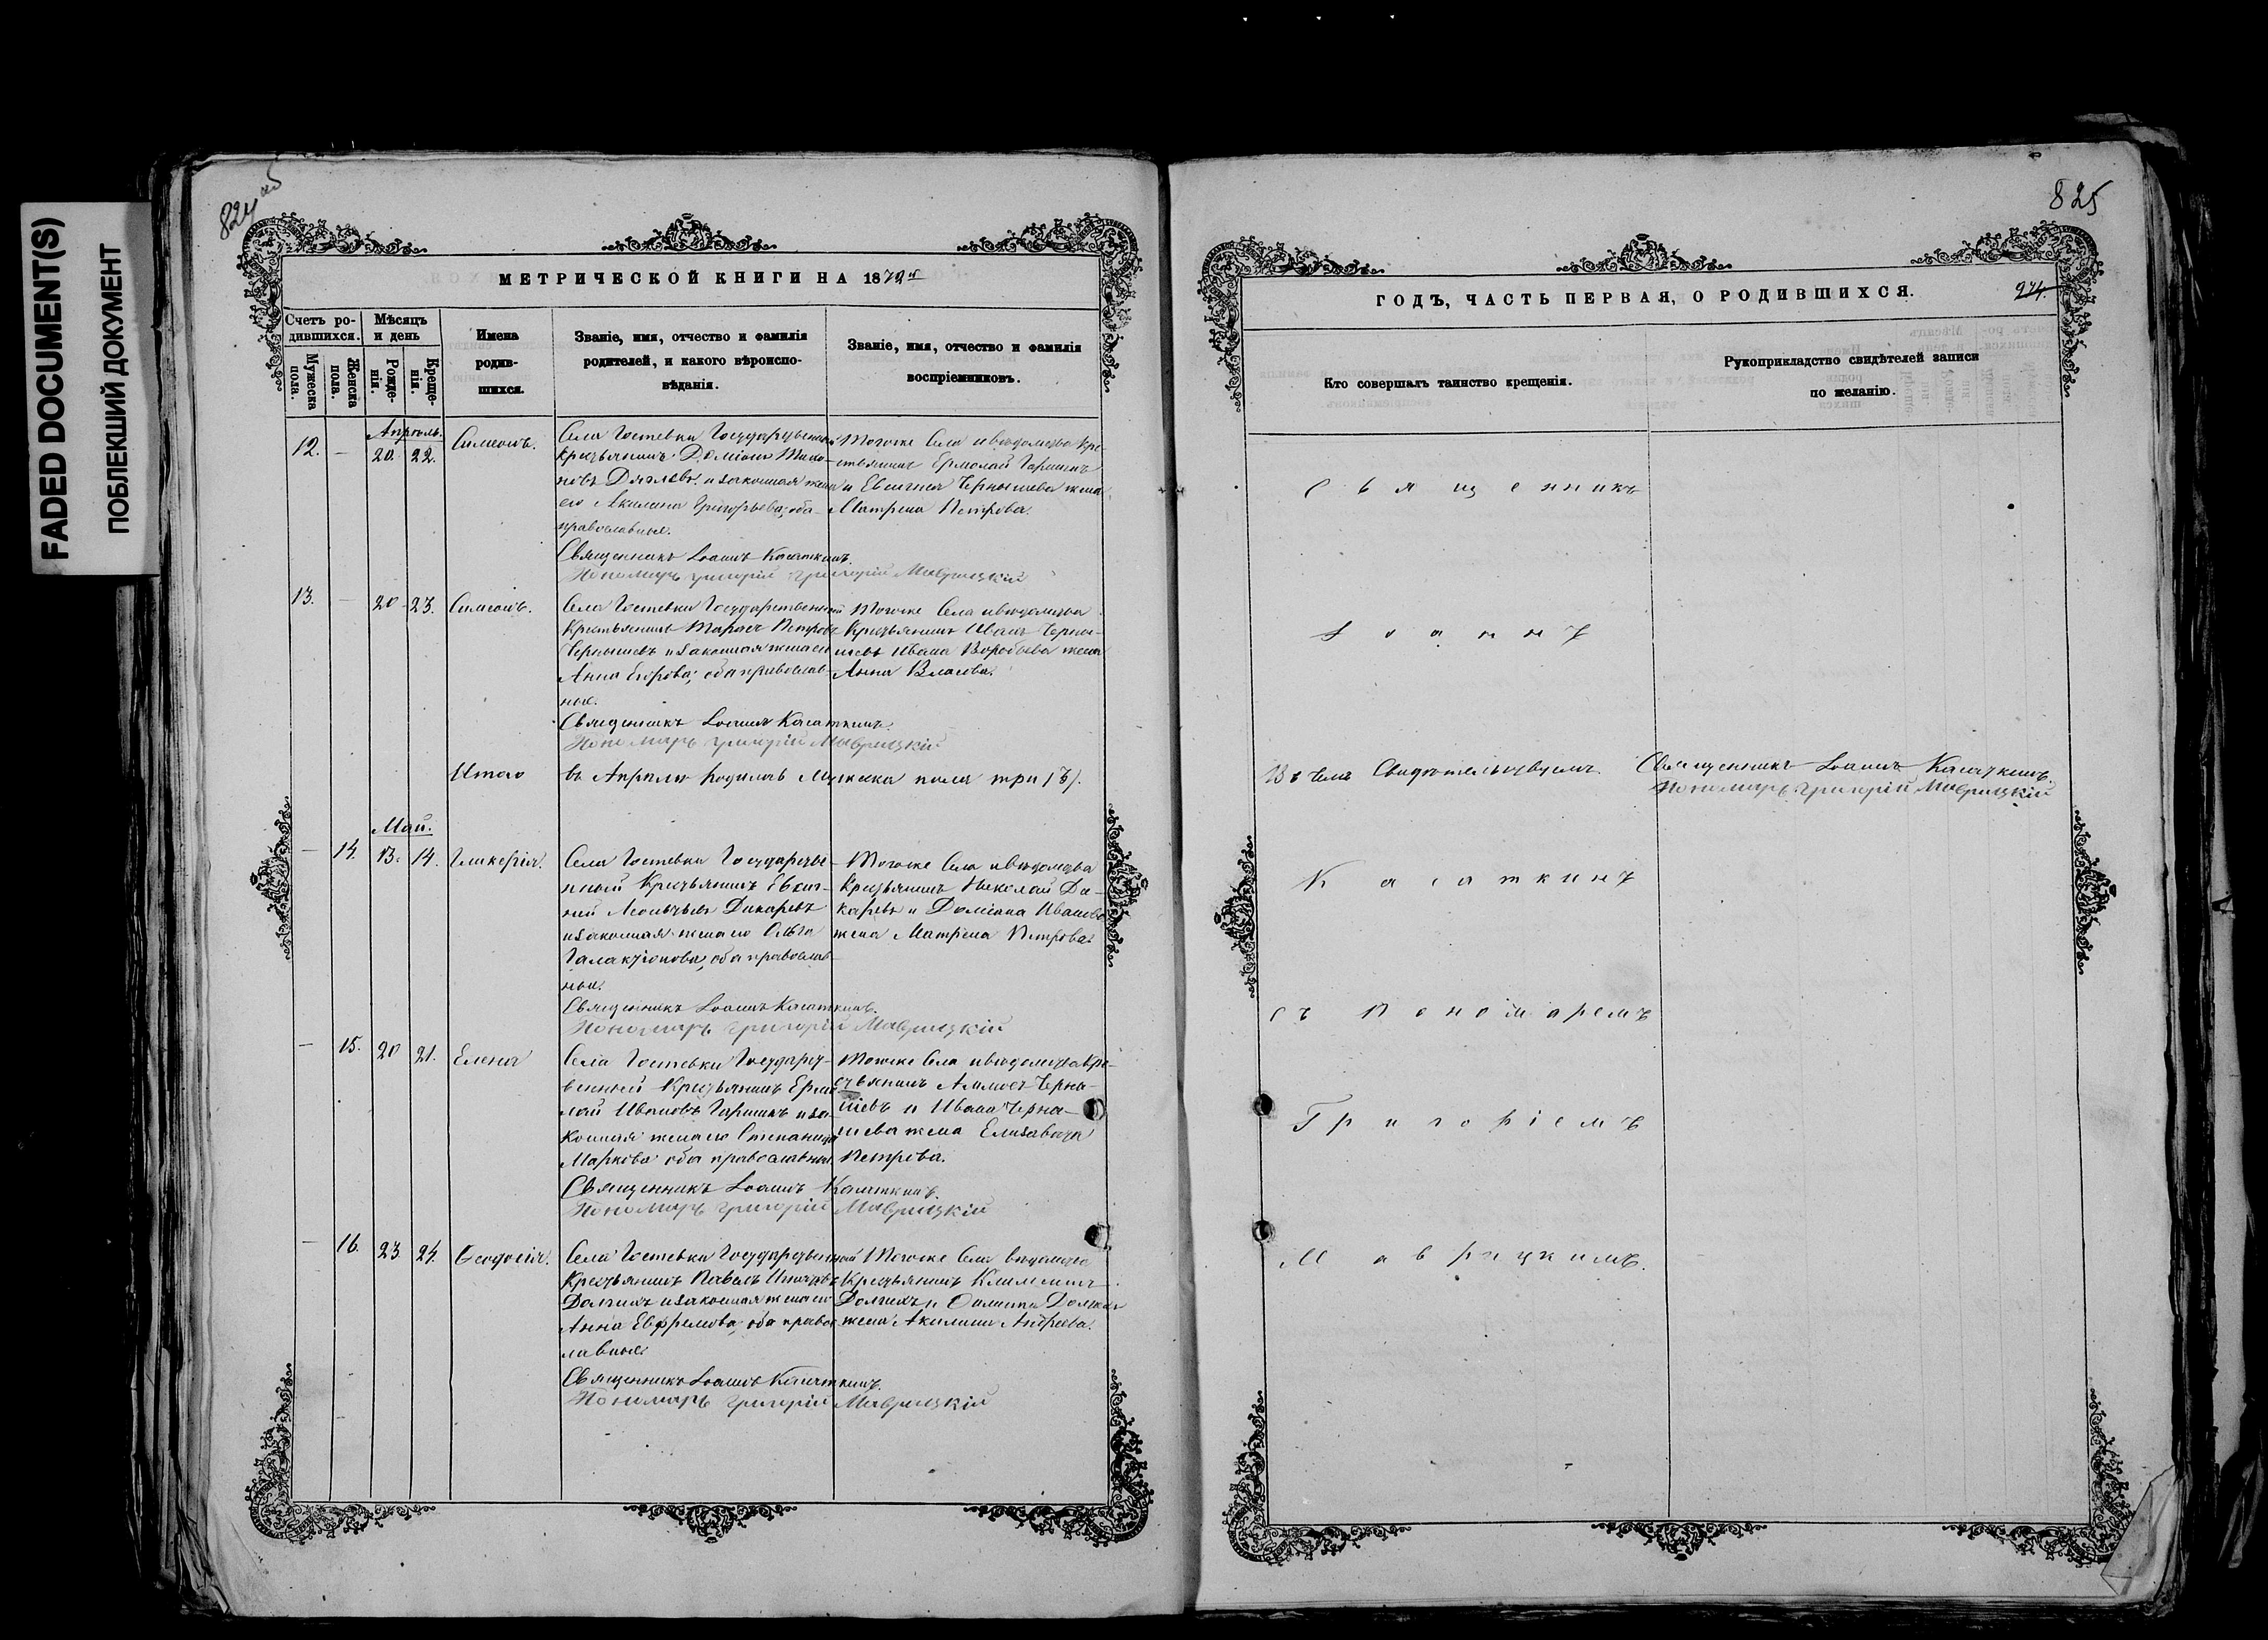 FADED DOCUMENT(S)
ПОБЛЕКШИЙ ДОКУМЕНТ
824 об
МЕТРИЧЕСКОЙ КНИГИ НА 1872й
Счетъ ро-
дившихся.
Мужеска пола.
Женска пола.
Мѣсяцъ
и день
Рожде-
нія.
Креще-
нія.
Имена
родив-
шихся.
Званіе, имя, отчество и фамилія
родителей, и какого вѣроиспо-
вѣданія.
Званіе, имя, отчество и фамилія
воспріемниковъ.
Апрѣль.
12. — 20. 22. Симеонъ.
Села Гостевки Государственный
Крестьянинъ Доміанъ
и законная жена
его Акилина Григорьева; оба
православные.
Тогоже Села и вѣдомства Кре-
стьянинъ Ермолай Гаршинъ
и Евсигнея Чернышева жена
Матрена Петрова.
Священникъ Іоаннъ Касаткинъ.
Пономарь Григорій Григорій Маврицкій
13. — 20 23. Симеонъ.
Села Гостевки Государственный
Крестьянинъ Тарасъ Петровъ
Чернышевъ и законная жена его
Анна Егорова; оба православ-
ные.
Тогоже Села и вѣдомства
Крестьянинъ Иванъ Черны-
шевъ и Ивана Воробьева жена
Анна Власова.
Священникъ Іоаннъ Касаткинъ.
Пономарь Григорій Маврицкій
Итого въ Апрѣлѣ родилось Мужеска пола три (3).
Май.
— 14. 13. 14. Гликерія.
Села Гостевки Государстве-
нный Крестьянинъ Евсиг-
ній Леонтьевъ Дикаревъ
и законная жена его Ольга
Галактіонова, оба православ-
ные.
Тогоже Села и вѣдомства
Крестьянинъ Николай Ди-
каревъ и Доміана Иванова
жена Матрена Петрова.
Священникъ Іоаннъ Касаткинъ.
Пономарь Григорій Маврицкій
— 15. 20 21. Елена
Села Гостевки Государст-
венный Крестьянинъ Ермо-
лай Ивановъ Гаршинъ и за-
конная жена его Степанида
Маркова оба православные.
Тогоже Села и вѣдомства Кре-
стьянинъ Черны-
шевъ и Ивана Черны-
шева жена Елизавета
Петрова.
Священникъ Іоаннъ Касаткинъ.
Пономарь Григорій Маврицкій
— 16. 23 24. Ѳеодосія.
Села Гостевки Государственный
Крестьянинъ Павелъ Игнатовъ
Долгихъ и законная жена его
Анна Евфремова; оба правос-
лавные.
Тогоже Села вѣдомства
Крестьянинъ Климентъ
Долгихъ и Филиппа Долгихъ
жена Акилина Андреева.
Священникъ Іоаннъ Касаткинъ.
Пономарь Григорій Маврицкій
825
ГОДЪ, ЧАСТЬ ПЕРВАЯ, О РОДИВШИХСЯ.
974.
Кто совершалъ таинство крещенія.
Рукоприкладство свидѣтелей записи
по желанію.
Священникъ
Іоаннъ
Въ чемъ Свидѣтельствуемъ. Священникъ Іоаннъ Касаткинъ.
Пономарь Григорій Маврицкій
Касаткинъ
съ Пономаремъ
Григоріемъ
Маврицкимъ.